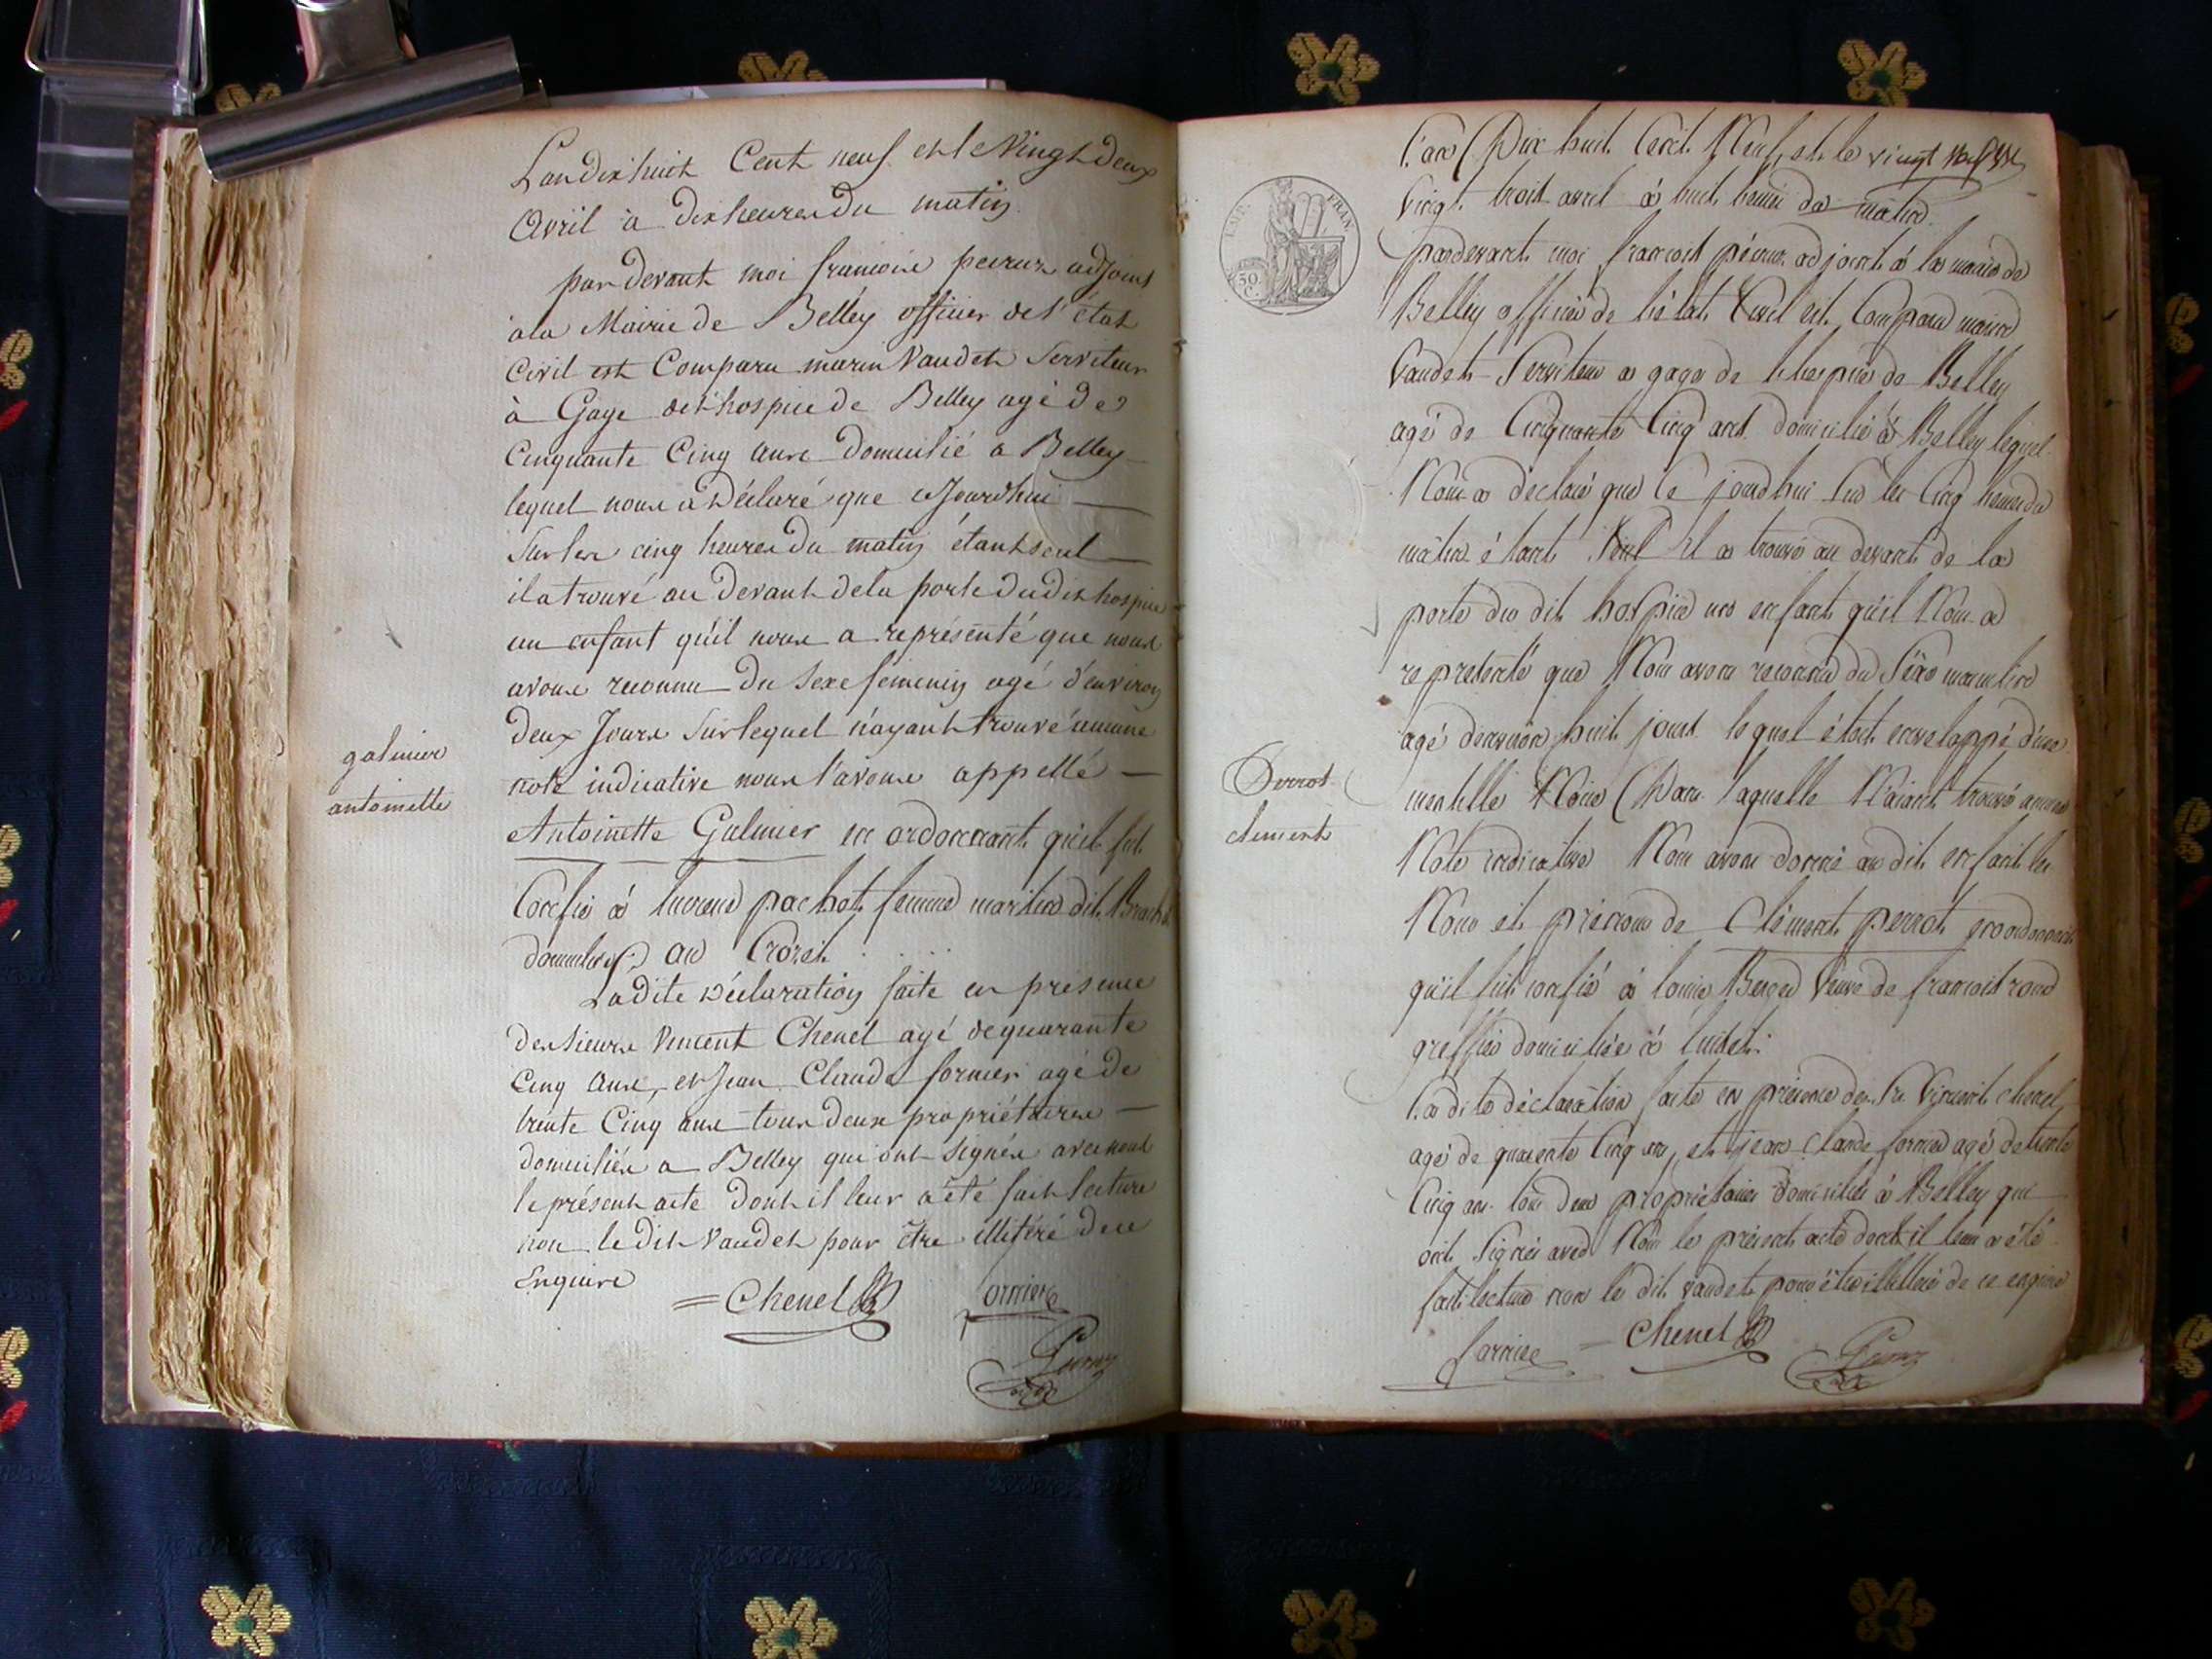 L'an dix huit Cent neuf et le Vingt deux
Avril à dix heures du matin
par devant moi francois peirux adjoint
a la Mairie de Belley officier de l'état
Civil est Comparu marin Vaudet Serviteur
à Gage de l'hospice de Belley agé de
Cinquante Cinq ans Domicilié a Belley
lequel nous a Déclaré que cejourd'hui
Sur les cinq heures du matin étant seul
il a trouvé au devant de la porte dudit hospice
un enfant qu'il nous a représenté que nous
avons reconnu du Sexe féminin agé d'environ
deux Jours Sur lequel n'ayant trouvé aucune
note indicative nous l'avons appellé
galinier
antoinette
Antoinette Galinier en ordonnant qu'il fut
Confié à pachot femme martin dit
au Crozet
La dite Déclaration faite en présence
des Sieurs Vincent Chenel agé de quarante
Cinq Ans, et Jean Claude fornier agé de
trente Cinq ans tous deux propriétaires
domiciliés a Belley qui ont Signés avec nous
le présent acte dont il leur a été fait lecture
non le dit Vaudet pour être illitéré de ce
Enquire
Chenel fornier
EST. FRAN.
50 C.
L'an Dix huit Cent Neuf et le vingt
Vingt trois avril à huit heures du matin
pardevant moi francois adjoint à la mairie de
Belley officier de l'état Civil est Comparu marin
Vaudet Serviteur a gage de l'hospice de Belley
agé de Cinquante Cinq ans domicilié à Belley lequel
Nous a déclaré que Ce jourdhui Sur les Cinq heures du
matin étant Seul il a trouvé au devant de la
porte du dit hospice un enfant qu'il Nous a
représenté que Nous avons reconnu du Sexe masculin
agé denviron huit jours lequel étoit enveloppé d'une
Perrot
clement
Noire Dans laquelle N'aiant trouvé aucune
Note indicative Nous avons donné au dit enfant les
Nom et prénom de Clément perrot en ordonnant
qu'il fut confié à louise Berger Veuve de francois rond
greffier domiciliée à
La dite déclaration faite en présence des Srs Vincent chenel
agé de quarante Cinq ans, et jean Claude fornier agé de trente
Cinq ans tous deux propriétaires domiciliés à Belley qui
ont Signés avec Nous le présent acte dont il leur a été
fait lecture non le dit vaudet pour être illittéré de ce enquire
fornier Chenel